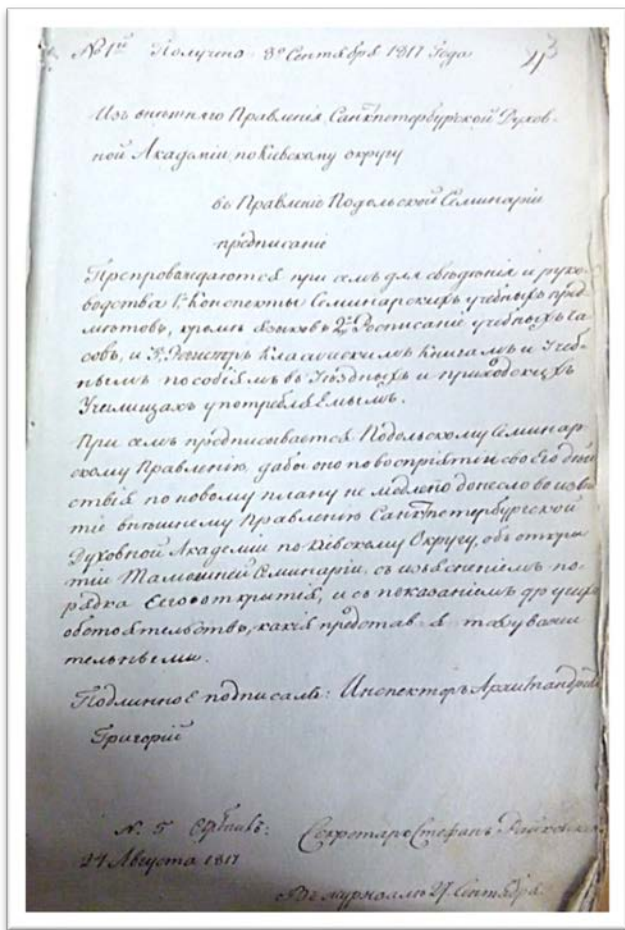 № 1й Получено 8го Сентября 1817 Года
Изъ внешняго Правленія Санктпетербургской Духов-
ной Академіи, по Кіевскому округу
въ Правленіе Подольской Семинаріи
предписаніе
Препровождаются при семъ для свѣдѣнія и руко-
водства 1е Конспекты Семинарскихъ учебныхъ пред-
мѣтовъ, кромѣ языковъ 2е Росписаніе учебныхъ ча
совъ, и 3е Регистръ Классическимъ Книгамъ и Учеб-
нымъ пособіямъ въ Уѣздныхъ и приходскихъ
Училищахъ употребляемымъ.
При семъ предписывается Подольскому Семинар
скому Правленію, дабы оно по воспріятіи своего дѣй
ствія по новому плану не медлено донесло во извѣ
тіе внѣшнему Правленію Санктпетербургской
Духовной Академіи по Кіевскому Округу, объ откры
тіи Тамошней Семинаріи, съ изъясненіемъ по-
рядка Его открытія, и съ показаніемъ другихъ
обстоятельствъ, какія представ-я
тельными.
Подлинное подписалъ: Инспекторъ Архимандритъ
Григорій
№ 5 Секретарь Стефанъ
24 Августа 1817
Въ журналѣ 27 Сентября